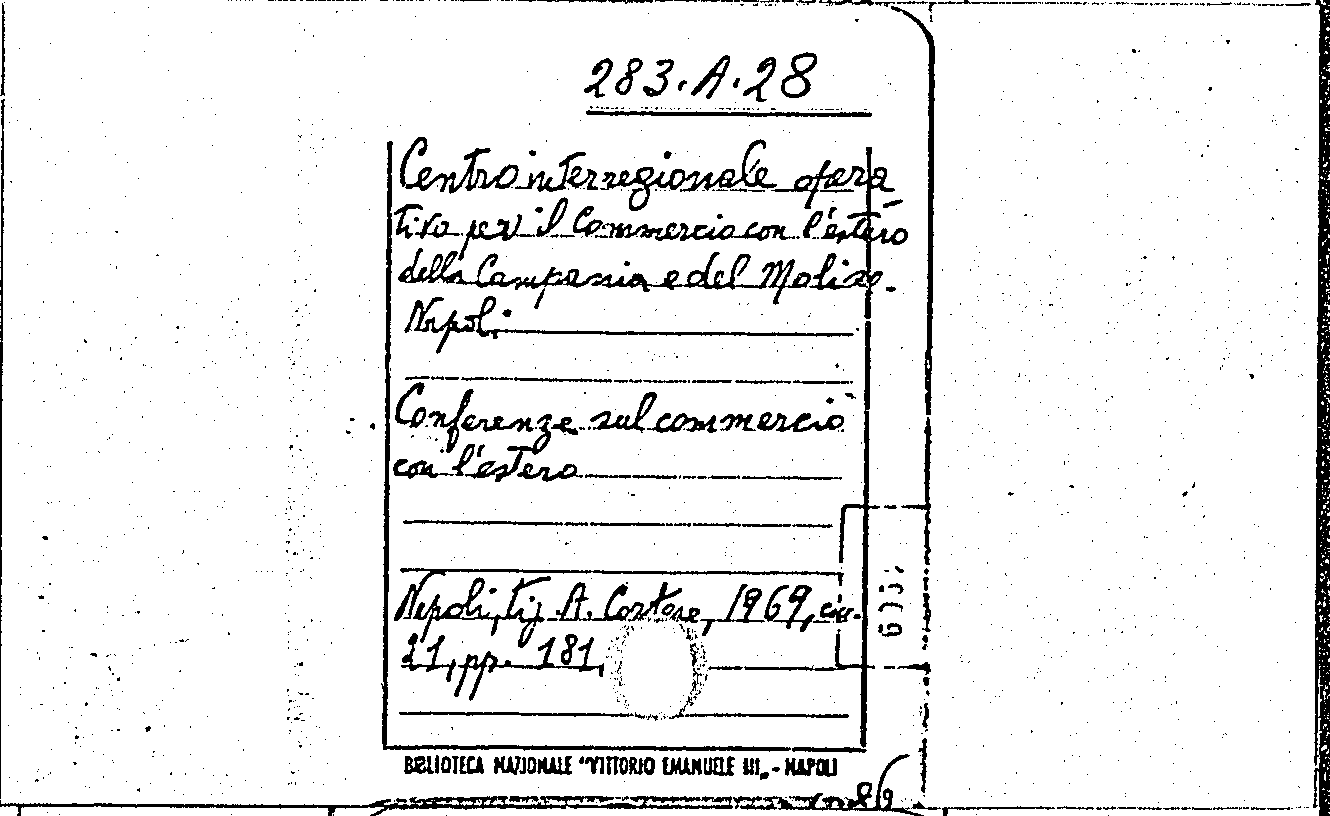 283.A.28
Centro interregionale opera
tivo per il Commercio con l'estero
della Campania e del Molise.
Napoli
Conferenze sul commercio
con l'estero
Napoli, tip. A. Cortese, 1969, cm.
21, pp. 181.
BIBLIOTECA NAZIONALE "VITTORIO EMANUELE III„ - NAPOLI